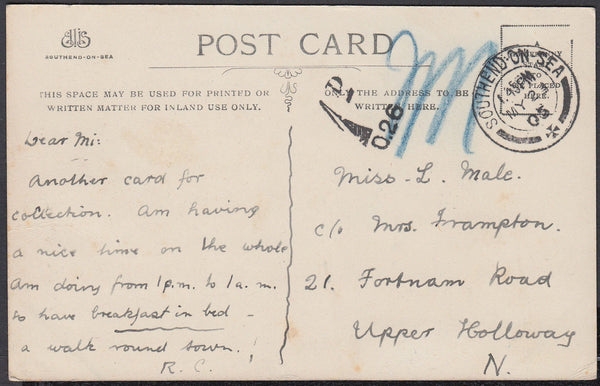 SOUTHEND-ON-SEA
POST CARD
THIS SPACE MAY BE USED FOR PRINTED OR
WRITTEN MATTER FOR INLAND USE ONLY.
ONLY THE ADDRESS TO BE
WRITTEN HERE.
SOUTHEND-ON-SEA
MY
05
026
Dear Mi:
Another card for
collection. Am having
a nice time on the whole
Am doing from 1 p.m. to 1 a.m.
to have breakfast in bed –
a walk round town.!
R.C.
Miss L. Male.
c/o Mrs. Frampton.
21. Fortnam Road
Upper Holloway
N.